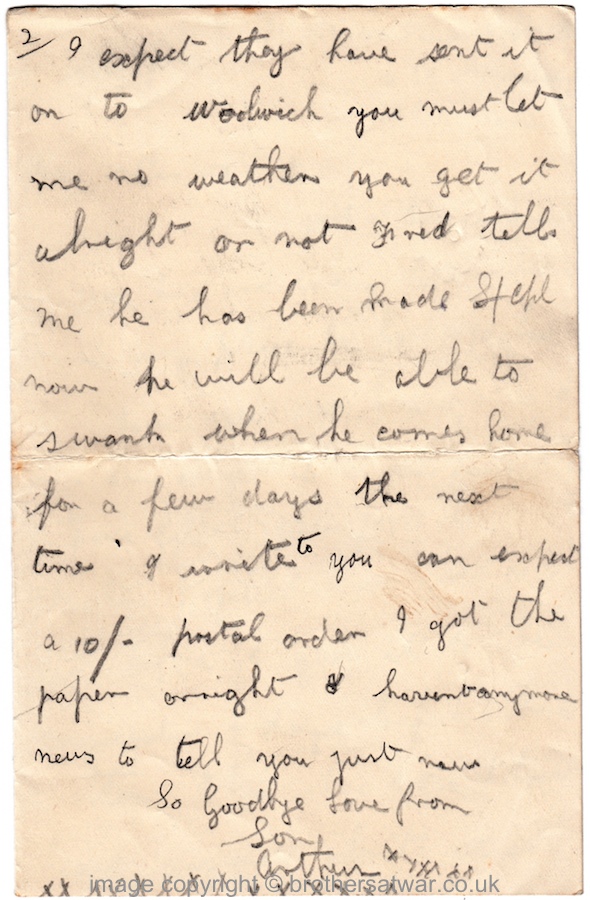 2/ I expect they have sent it
on to Woolwich you must let
me no weather you get it
alright or not Fred tells
me he has been made S/Cpl
now he will be able to
swank when he comes home
for a few days the next
time I write to you can expect
a 10/- postal order I got the
paper orright I havent anymore
news to tell you just now
So Goodbye Love from
Son
Arthur xxxxxx
xx x x x x x x x x x
image copyright © brothersatwar.co.uk